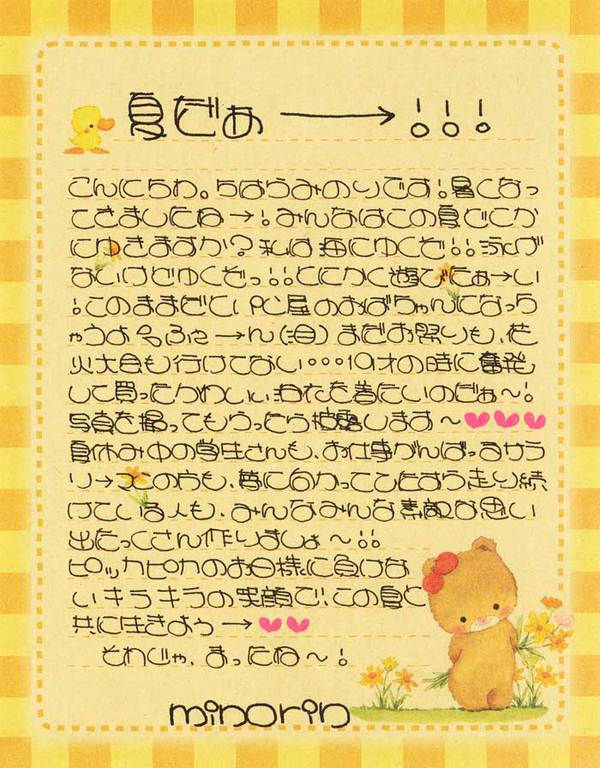 夏だぁ ──→ !!!
こんにちわ。ちはらみのりです!暑くなっ
てきましたね→!みんなはこの夏どこか
にゆきますか?私は海にゆくぞ!!泳げ
ないけどゆくぞっ!!とにかく遊びたぁ→い
!このままだと、PC屋のおばちゃんになっち
ゃうよぅふぇ→ん(泪)まだお祭りも、花
火大会も行けてない…19才の時に奮発
して買ったかわいぃ ゆかたを着たいのだぁ~!
写真を撮ってもらったら披露します~
夏休み中の学生さんも、お仕事がんばってるサラ
リ→マンの方も、夢に向かってひたすら走り続
けている人も、みんなみんな素敵な思い
出たっくさん作りましょ~!!
ピッカピカのお日様に負けな
いキラキラの笑顔で、この夏と
共に生きよう→
それじゃ、まったね~!
minorin